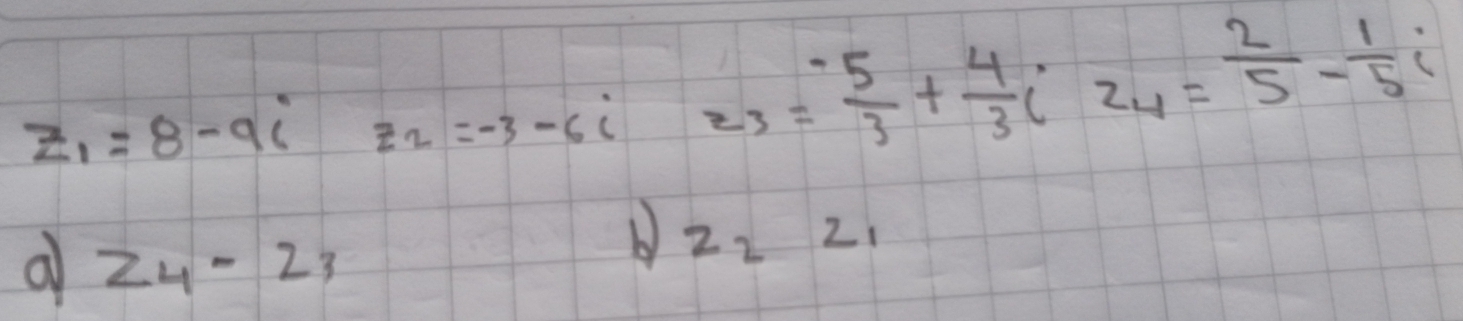 z₁ = 8 - 9i z₂ = -3 - 6i z₃ = -5/3 + 4/3 i z₄ = 2/5 - 1/5 i
a) z₄ - z₃ b) z₂ z₁